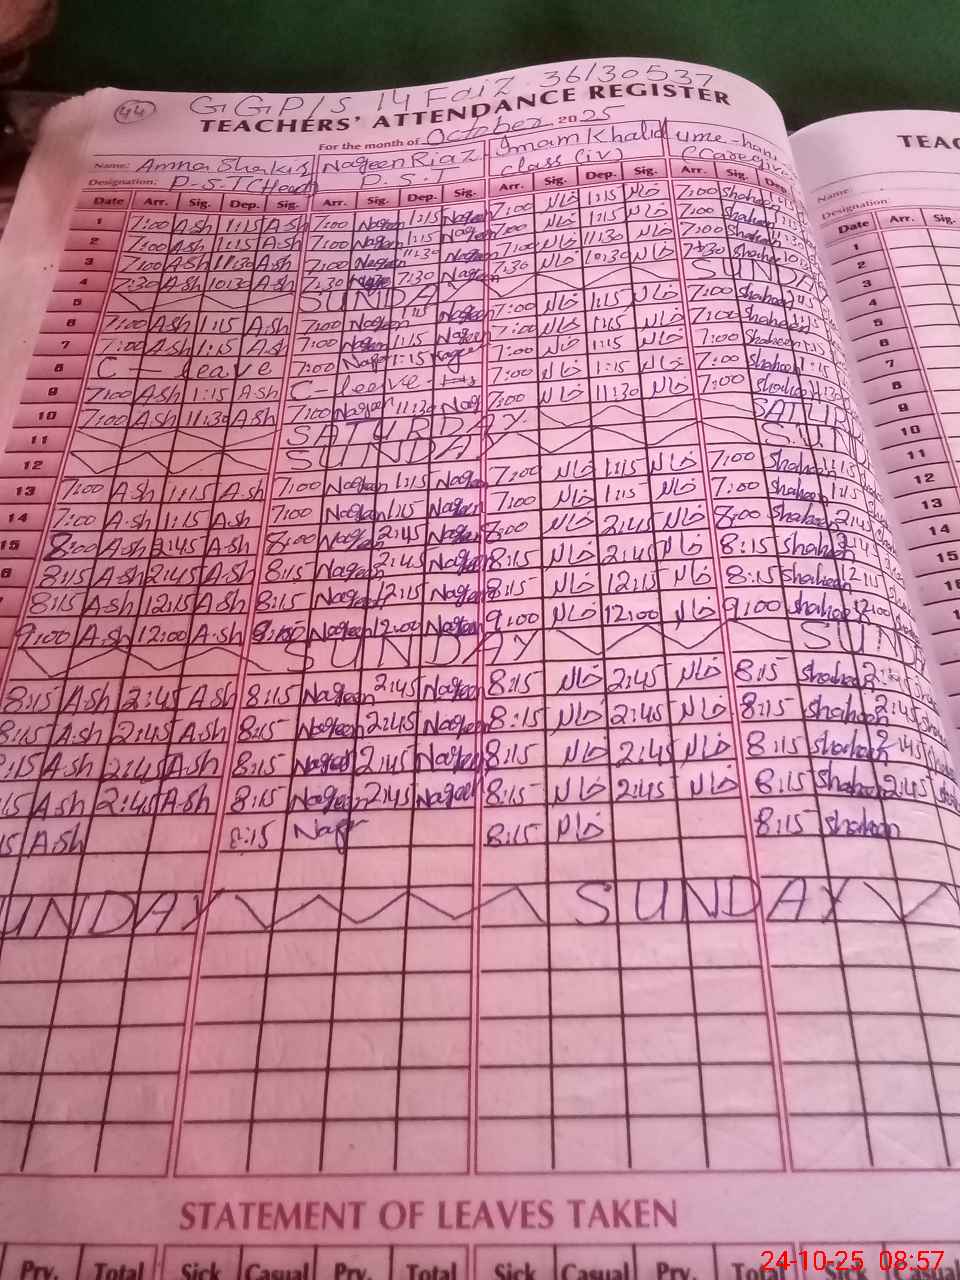 44
GGP/S 14 Faiz 36130537
TEACHERS' ATTENDANCE REGISTER
For the month of October 2025
Name: Amna Shakir Nageen Riaz Imam Khalid ume-hani
Designation: P.S.T (Head P.S.T class (iv)
Date Arr. Sig. Dep. Sig. Arr. Sig. Dep. Sig. Arr. Sig. Dep. Sig. Arr. Sig. Dep.
1 7:00 A.sh 1:15 A.sh 7:00 Nageen 1:15 Nageen 7:00 خالد 1:15 خالد 7:00 Shaheen 1:15
2 7:00 A.sh 1:15 A.sh 7:00 Nageen 1:15 Nageen 7:00 خالد 1:15 خالد 7:00 Shaheen
3 7:00 A.sh 11:30 A.sh 7:00 Nageen 11:30 Nageen 7:00 خالد 11:30 خالد 7:00 Shaheen
4 7:30 A.sh 10:30 A.sh 7:30 Nageen 7:30 خالد 10:30 خالد 7:30 Shaheen
5 SUNDAY SUNDAY
6 7:00 A.sh 1:15 A.sh 7:00 Nageen 1:15 Nageen 7:00 خالد 1:15 خالد 7:00 Shaheen
7 7:00 A.sh 1:15 A.sh 7:00 Nageen 1:15 Nageen 7:00 خالد 1:15 خالد 7:00 Shaheen
8 C - leave 7:00 Nageen 1:15 Nageen 7:00 خالد 1:15 خالد 7:00 Shaheen
9 7:00 A.sh 1:15 A.sh C - leeve 7:00 خالد 1:15 خالد 7:00 Shaheen 1:15
10 7:00 A.sh 11:30 A.sh 7:00 Nageen 11:30 Nag 7:00 خالد 11:30 خالد 7:00 Shaheen 11:30
11 SATURDAY SATURD
12 SUNDAY SUN
13 7:00 A.sh 1:15 A.sh 7:00 Nageen 1:15 Nageen 7:00 خالد 1:15 خالد 7:00 Shaheen 1:15
14 7:00 A.sh 1:15 A.sh 7:00 Nageen 1:15 Nageen 7:00 خالد 1:15 خالد 7:00 Shaheen 1:15
15 8:00 A.sh 2:45 A.sh 8:00 Nageen 2:45 Nageen 8:00 خالد 2:45 خالد 8:00 Shaheen 2:45
6 8:15 A.sh 2:45 A.sh 8:15 Nageen 2:45 Nageen 8:15 خالد 2:45 خالد 8:15 Shaheen
8:15 A.sh 12:15 A.sh 8:15 Nageen 12:15 Nageen 8:15 خالد 12:15 خالد 8:15 Shaheen 12:15
9:00 A.sh 12:00 A.sh 9:00 Nageen 12:00 Nageen 9:00 خالد 12:00 خالد 9:00 Shaheen 12:00
SUNDAY SUND
8:15 A.sh 2:45 A.sh 8:15 Nageen 2:45 Nageen 8:15 خالد 2:45 خالد 8:15 Shaheen 2:45
8:15 A.sh 2:45 A.sh 8:15 Nageen 2:45 Nageen 8:15 خالد 2:45 خالد 8:15 Shaheen 2:45
:15 A.sh 2:45 A.sh 8:15 Nageen 2:45 Nageen 8:15 خالد 2:45 خالد 8:15 Shaheen 2:45
15 A.sh 2:45 A.sh 8:15 Nageen 2:45 Nageen 8:15 خالد 2:45 خالد 8:15 Shaheen 2:45
15 A.sh 8:15 Nagee 8:15 خالد 8:15 Shaheen
UNDAY SUNDAY
STATEMENT OF LEAVES TAKEN
Prv. Total Sick Casual Prv. Total Sick Casual Prv. Total
TEAC
Name:
Designation:
Date Arr. Sig.
1
2
3
4
5
6
7
8
9
10
11
12
13
14
15
24-10-25 08:57